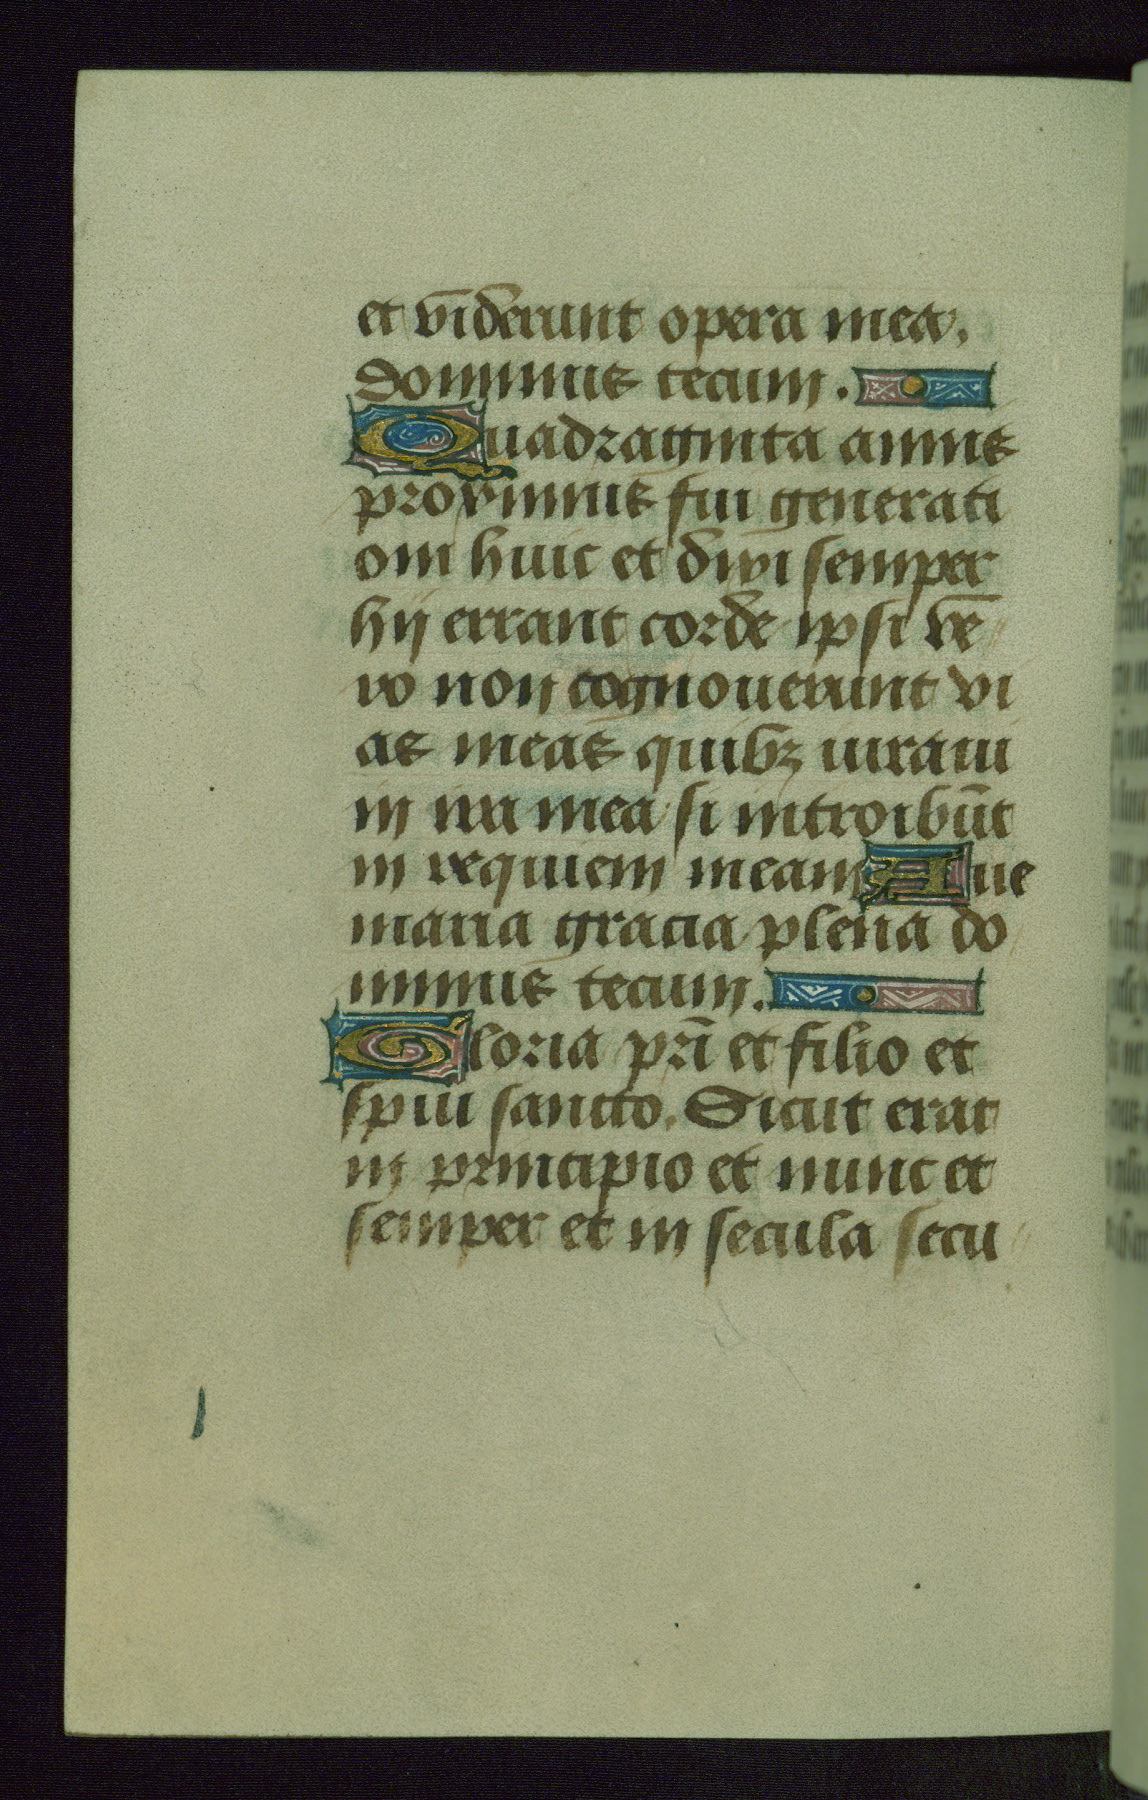 et viderunt opera mea.
dominus tecum.
Quadraginta annis
proximus fui generati
oni huic et dixi semper
hij errant corde ipsi ve
ro non cognouerunt vi
as meas quibꝫ iuraui
in ira mea si introibūt
in requiem meam Aue
maria gracia plena do
minus tecum.
Gloria pr̄i et filio et
spiui sancto. Sicut erat
in principio et nunc et
semper et in secula secu